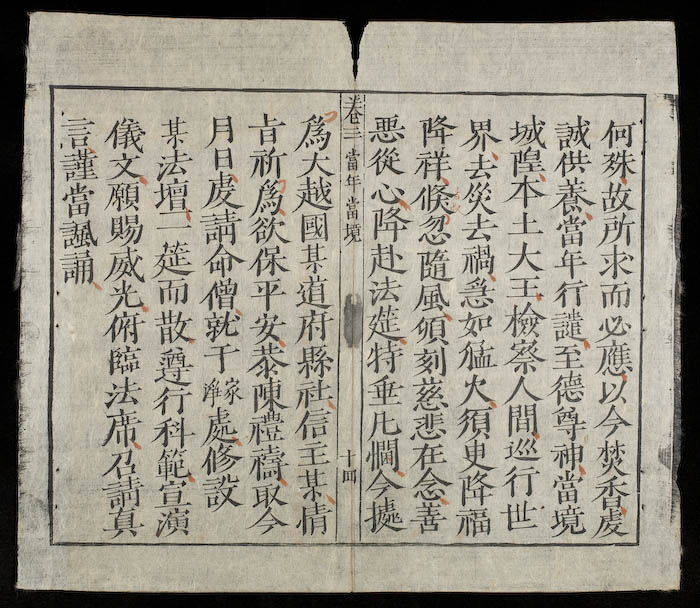 何殊故所求而必應以今焚香虔
誠供養當年行譴至德尊神當境
城隍本土大王檢察人間巡行世
界去災去禍急如艋火須更降福
降祥倏忽隨風頃刻慈悲在念善
惡從心降赴法筵特垂凡憫今據
卷三 當年當境 十四
爲大越國某道府縣社信主某情
旨祈爲欲保平安恭陳禮禱取今
月日虔請命僧就于家淨處修設
某法壇一筵而散遵行科範宣演
儀文願賜威光俯臨法席召請真
言謹當諷誦